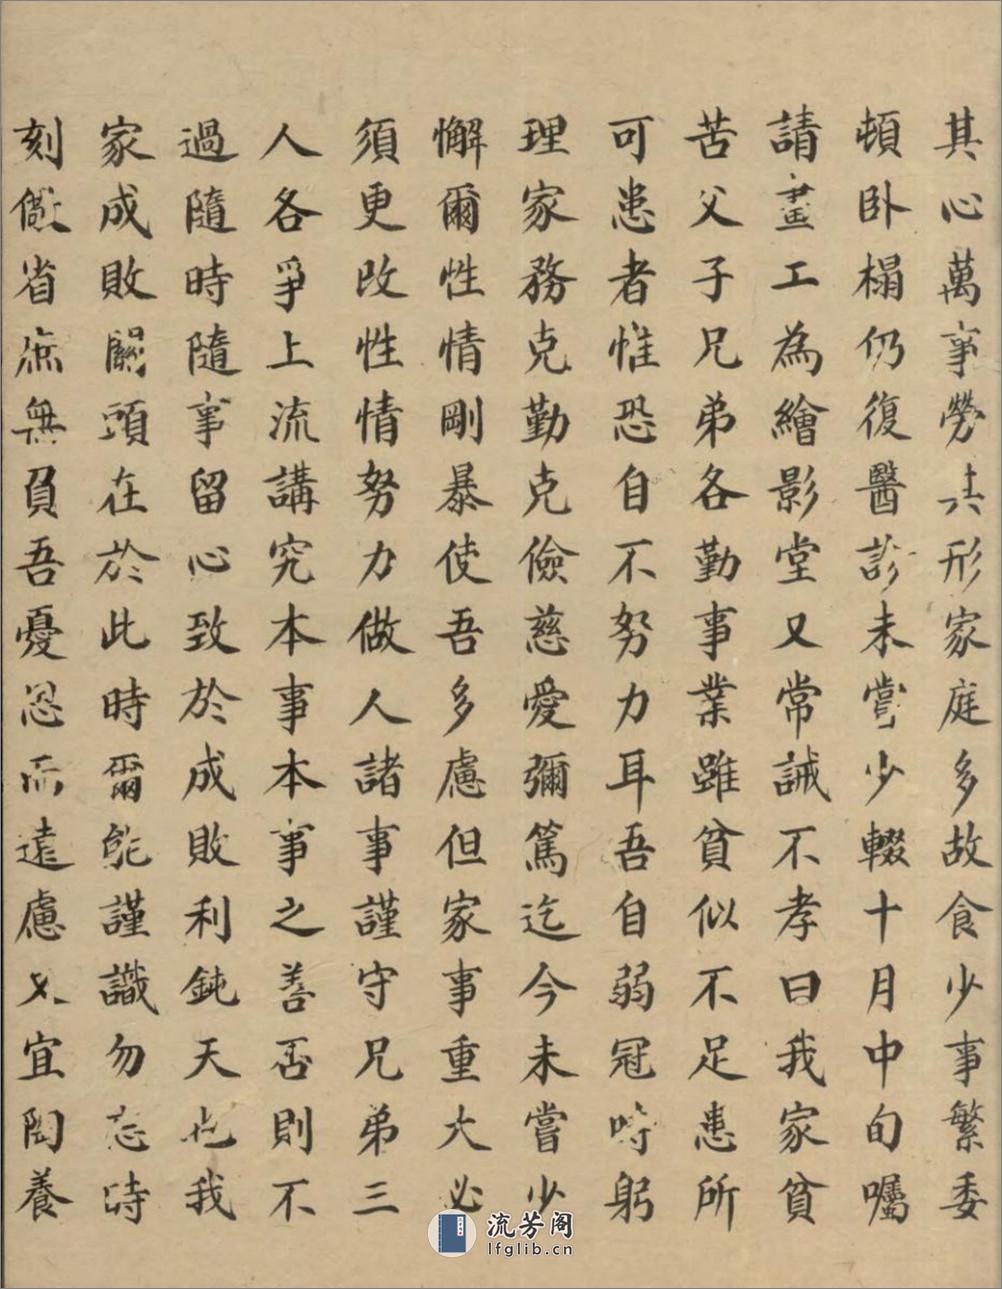 其心萬事勞其形家庭多故食少事繁委
頓卧榻仍復醫診未嘗少輟十月中旬囑
請畫工為繪影堂又常誡不孝曰我家貧
苦父子兄弟各勤事業雖貧似不足患所
可患者惟恐自不努力耳吾自弱冠時躬
理家務克勤克儉慈愛彌篤迄今未嘗少
懈爾性情剛暴使吾多慮但家事重大必
須更改性情努力做人諸事謹守兄弟三
人各爭上流講究本事本事之善否則不
過隨時隨事留心致於成敗利鈍天也我
家成敗關頭在於此時爾能謹識勿忘時
刻儆省庶無負吾憂思而遠慮又宜陶養
流芳阁
lfglib.cn